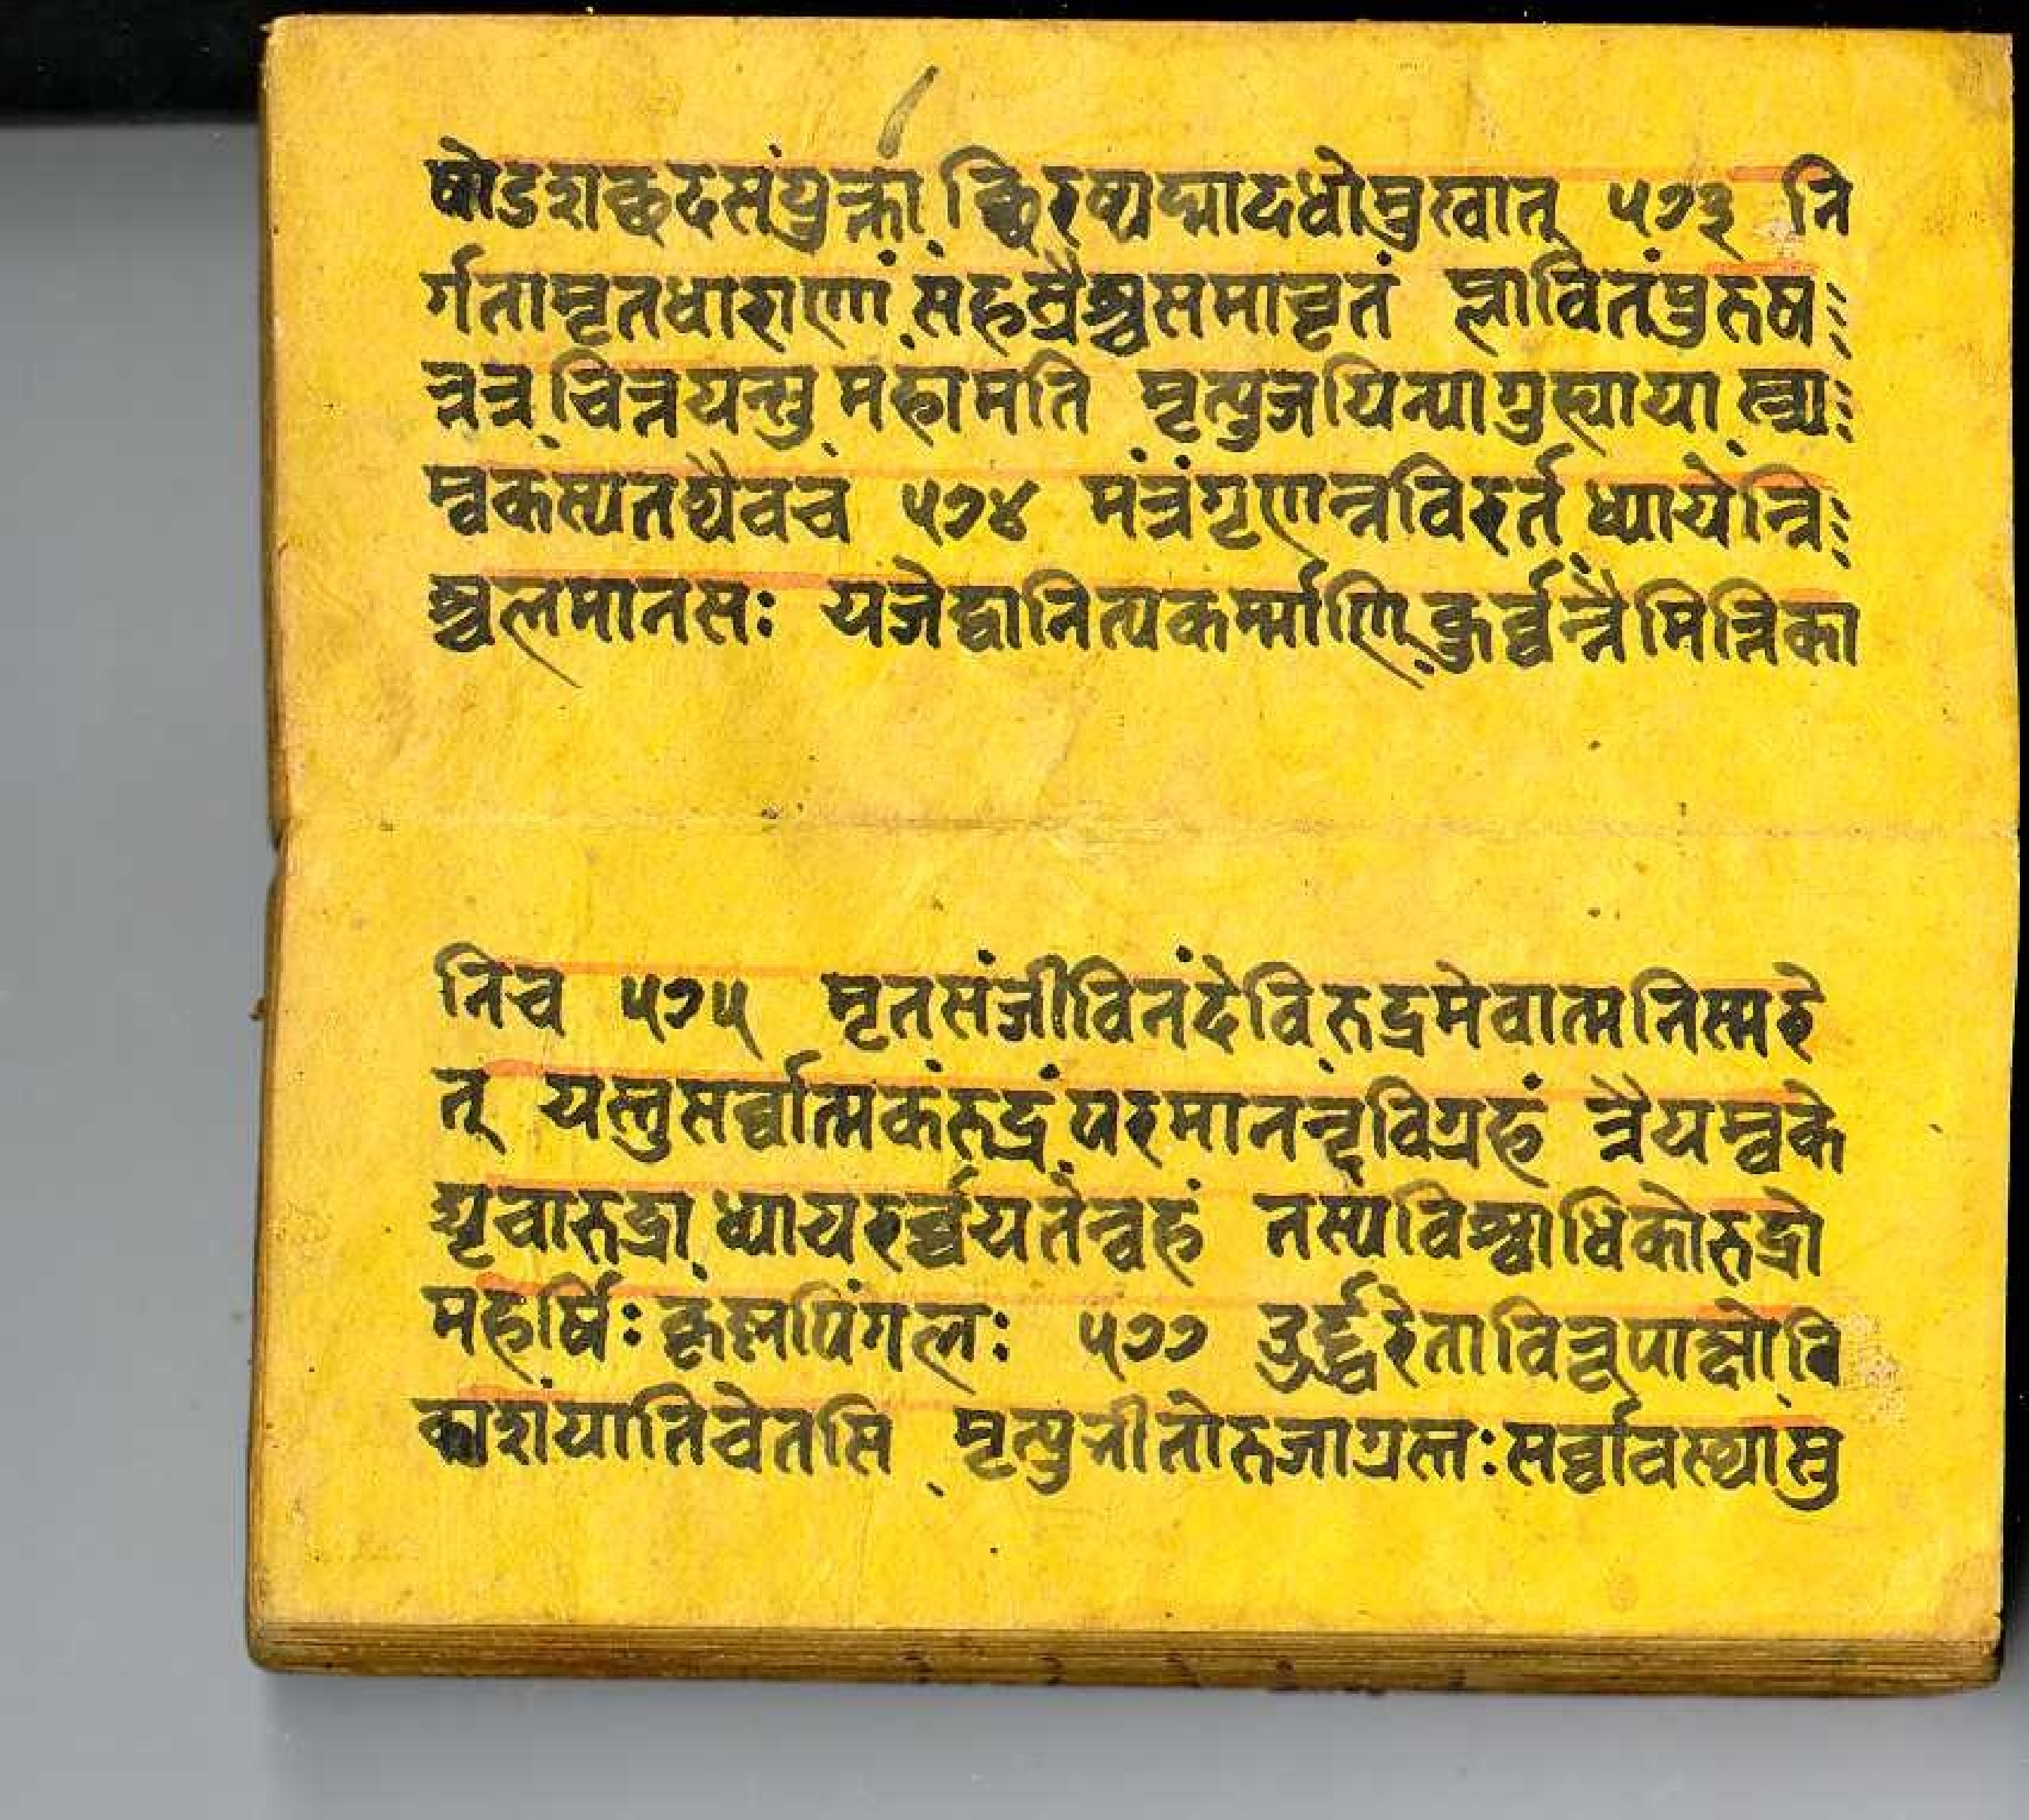 षोडशछदसंयुक्ता छिरष्पद्मादधोमुखात् ५७३ नि
र्गतामृतधाराणां संहस्रैश्चसमावृतं प्लावितंपुरुष
त्रत्र चिन्नयन्तु महामति मृत्युजयिन्यागुह्याया स्त्र्य
म्वकस्यतथैवच ५७४ मंत्रंगृणन्नविरतं ध्यायेन्नि
श्चलमानसः यजेद्वानित्यकर्म्माणि कुर्व्वन्नैमित्तिका
निच ५७५ मृतसंजीविनंदेवि रुद्रमेवात्मनिस्मरे
त् यस्तुसर्व्वात्मकंरुद्रं परमानन्दविग्रहं त्रैयम्वके
ह्यृचारुद्रा ध्यायरर्च्चयतेन्वहं तस्यविश्वाधिकोरुद्रो
महर्षिः कृष्णपिंगलः ५७७ उर्द्ध्वरेताविरूपाक्षोवि
काशंयातिचेतसि मृत्युनीतोरुजाग्रस्तः सर्व्वावस्थासु